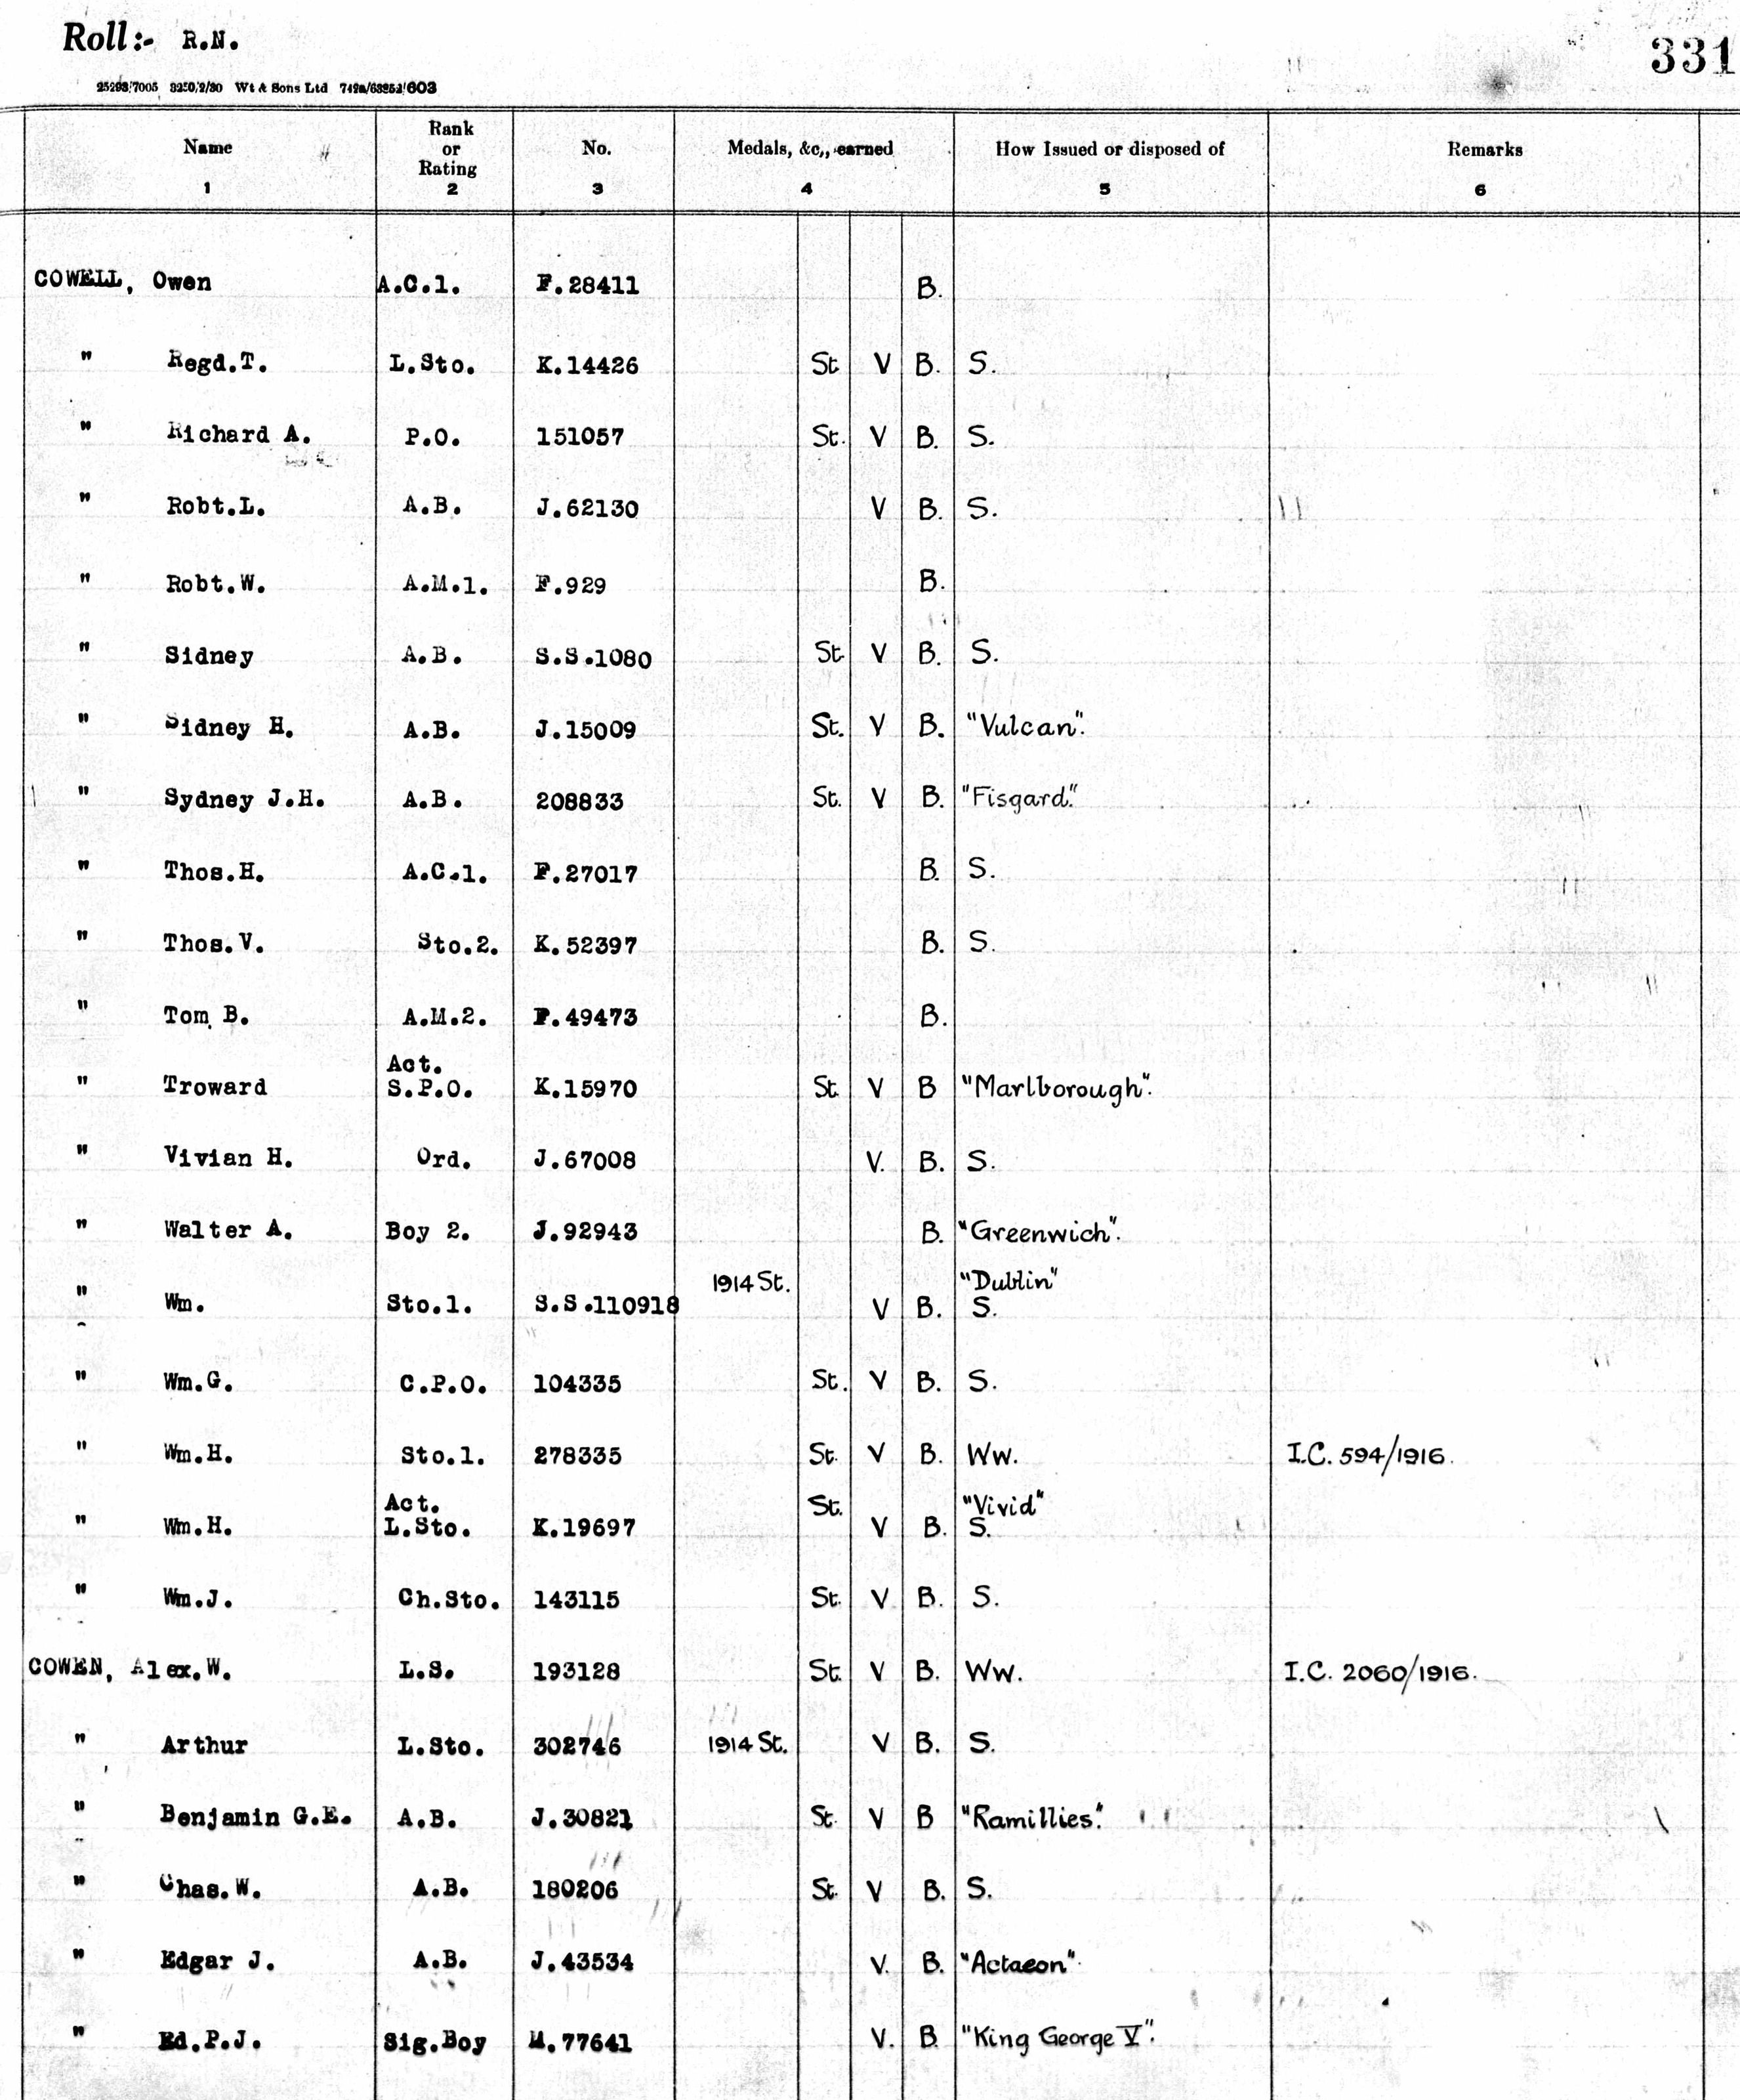 Roll:- R.N.
331
Wt & Sons Ltd
Name Rank or Rating No. Medals, &c., earned How Issued or disposed of Remarks
1 2 3 4 5 6
COWELL, Owen A.C.1. F.28411 B.
" Regd.T. L.Sto. K.14426 St V B. S.
" Richard A. P.O. 151057 St. V B. S.
" Robt.L. A.B. J.62130 V B. S.
" Robt.W. A.M.1. F.929 B.
" Sidney A.B. S.S.1080 St. V B. S.
" Sidney H. A.B. J.15009 St. V B. "Vulcan".
" Sydney J.H. A.B. 208833 St. V B. "Fisgard".
" Thos.H. A.C.1. F.27017 B. S.
" Thos.V. Sto.2. K.52397 B. S.
" Tom B. A.M.2. F.49473 B.
Act.
" Troward S.P.O. K.15970 St. V B "Marlborough".
" Vivian H. Ord. J.67008 V. B. S.
" Walter A. Boy 2. J.92943 B. "Greenwich".
1914 St. "Dublin"
" Wm. Sto.1. S.S.110918 V B. S.
" Wm.G. C.P.O. 104335 St. V B. S.
" Wm.H. Sto.1. 278335 St. V B. Ww. I.C. 594/1916.
Act. St. "Vivid"
" Wm.H. L.Sto. K.19697 V B. S.
" Wm.J. Ch.Sto. 143115 St. V B. S.
COWEN, Alex.W. L.S. 193128 St. V B. Ww. I.C. 2060/1916.
" Arthur L.Sto. 302746 1914 St. V B. S.
" Benjamin G.E. A.B. J.30821 St. V B "Ramillies".
" Chas.W. A.B. 180206 St. V B. S.
" Edgar J. A.B. J.43534 V. B. "Actaeon".
" Ed.P.J. Sig.Boy M.77641 V. B "King George V".